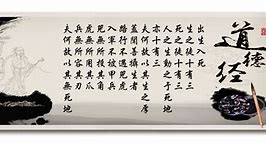 道德经
出生入死
生之徒十有三
死之徒十有三
人之生動之于死地
亦十有三
夫何故以其生之厚
蓋聞善攝生者
路行不遇兕虎
入軍不被甲兵
兕無所投其角
虎無所用其爪
兵無所容其刃
夫何故以其無死地